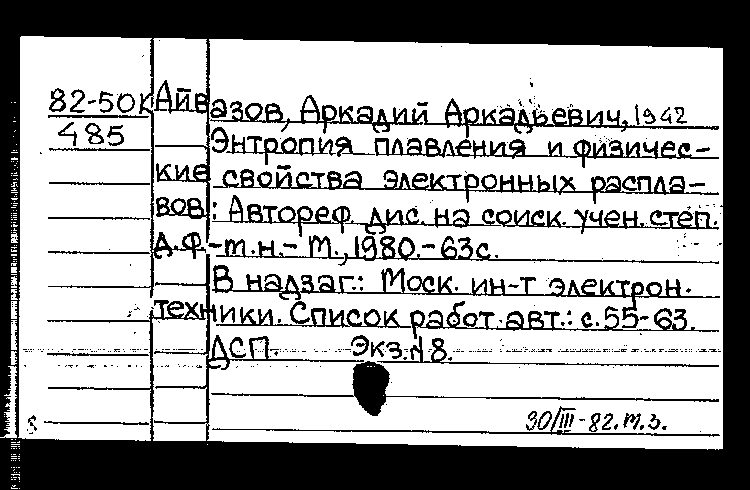 82-50К Айвазов, Аркадий Аркадьевич, 1942
485 Энтропия плавления и физичес-
кие свойства электронных распла-
вов: Автореф. дис. на соиск. учен. степ.
д.ф.-т.н.- М., 1980.- 63с.
В надзаг.: Моск. ин-т электрон.
техники. Список работ авт.: с.55-63.
ДСП. Экз.№8.
30/III-82.т.з.
8